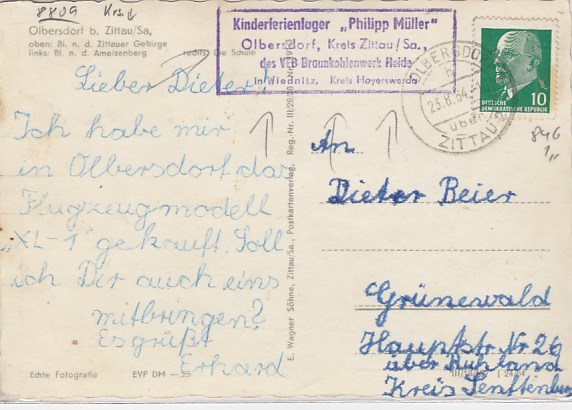 8809
Olbersdorf b. Zittau/Sa,
oben: Bl. n. d. Zittauer Gebirge
links: Bl. n. d. Ameisenberg
rechts: Die Schule
Lieber Dieter!
Ich habe mir
in Olbersdorf das
Flugzeugmodell
"XL-1" gekauft. Soll
ich Dir auch eins
mitbringen?
Es grüßt
Erhard
Echte Fotografie EYP DM —.25
E. Wagner Söhne, Zittau/Sa., Postkartenverlag, Reg.-Nr. III/28/8
Kinderferienlager „Philipp Müller"
Olbersdorf, Kreis Zittau/Sa.,
des VEB Braunkohlenwerk Heide
in Wiednitz, Kreis Hoyerswerda
OLBERSDORF
23.8.64
über
ZITTAU 2
10
DEUTSCHE
DEMOKRATISCHE REPUBLIK
846
1,,
An
Dieter Beier
Grünewald
Hauptstr Nr 26
über Ruhland
Kreis Senftenburg